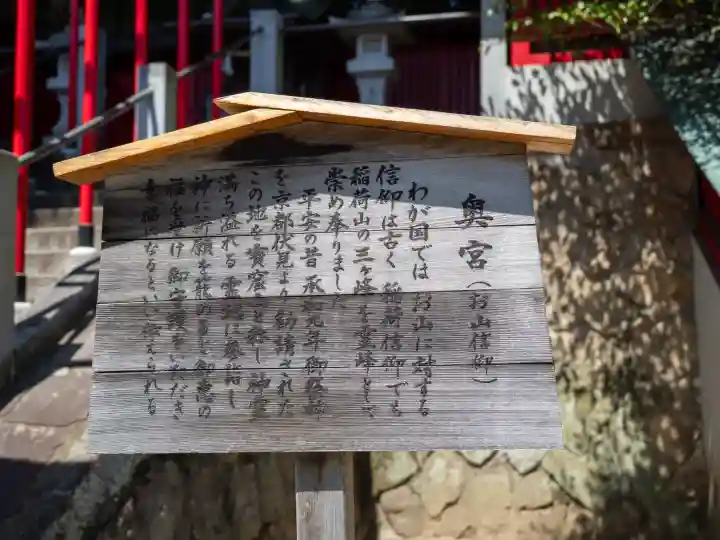 奥宮(お山信仰)
わが国では お山に対する
信仰は古く 稲荷信仰でも
稲荷山の三ヶ峰を霊峰として
崇め奉りました
平安の昔 承元年御
を京都伏見より勧請された
この地を 霊窟と称し 神霊
満ち溢れる 霊場に参詣し
神に祈願を籠めると御恵の
福を受け 御守護をいただき
幸福になるといい伝えられる